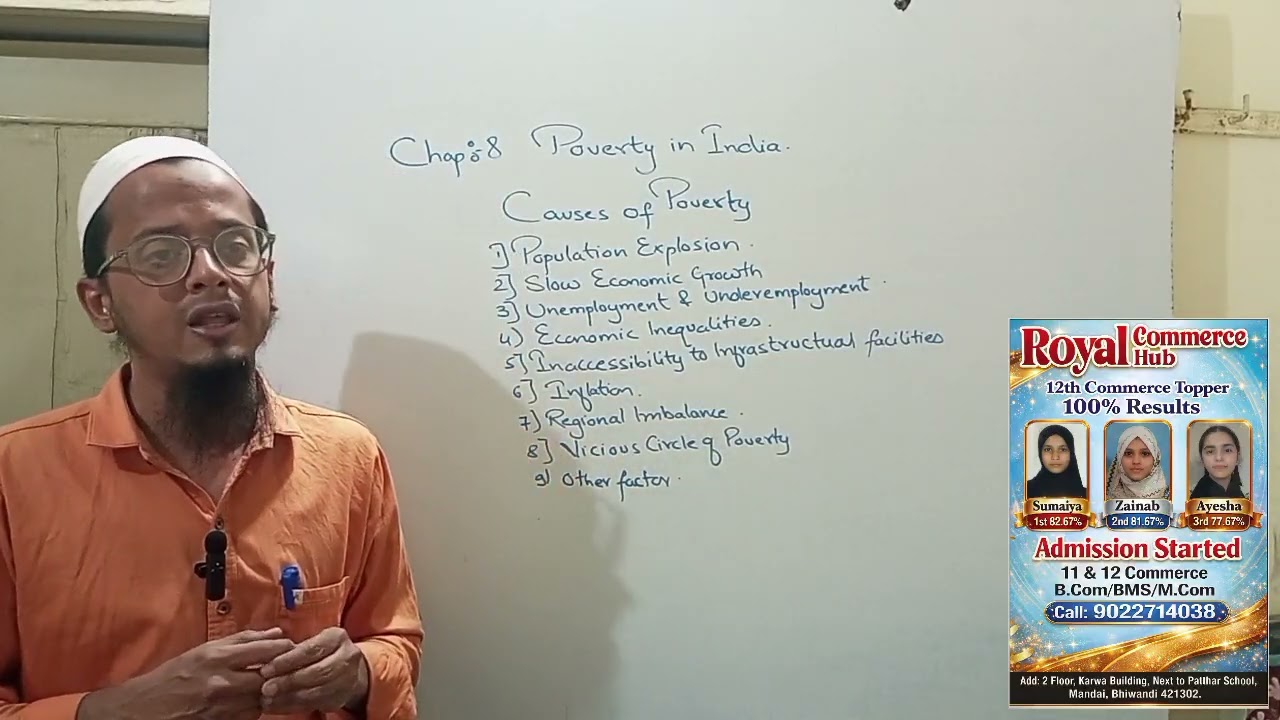 Chap:8 Poverty in India.
Causes of Poverty
1] Population Explosion.
2] Slow Economic Growth
3] Unemployment & Underemployment.
4) Economic Inequalities.
5] Inaccessibility to Infrastructual facilities
6] Inflation.
7] Regional Imbalance.
8] Vicious Circle of Poverty
9) Other factor.
Royal Commerce Hub
12th Commerce Topper
100% Results
Sumaiya Zainab Ayesha
1st 82.67% 2nd 81.67% 3rd 77.67%
Admission Started
11 & 12 Commerce
B.Com/BMS/M.Com
Call: 9022714038
Add: 2 Floor, Karwa Building, Next to Patthar School,
Mandai, Bhiwandi 421302.